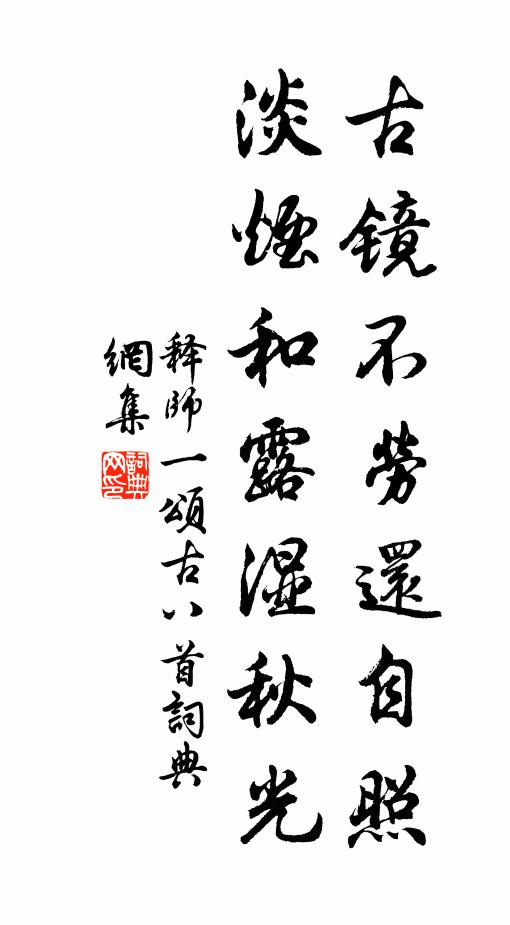 古镜不勞還自照
淡煙和露湿秋光
释師一頌古八首詞典
網集
詞典网印